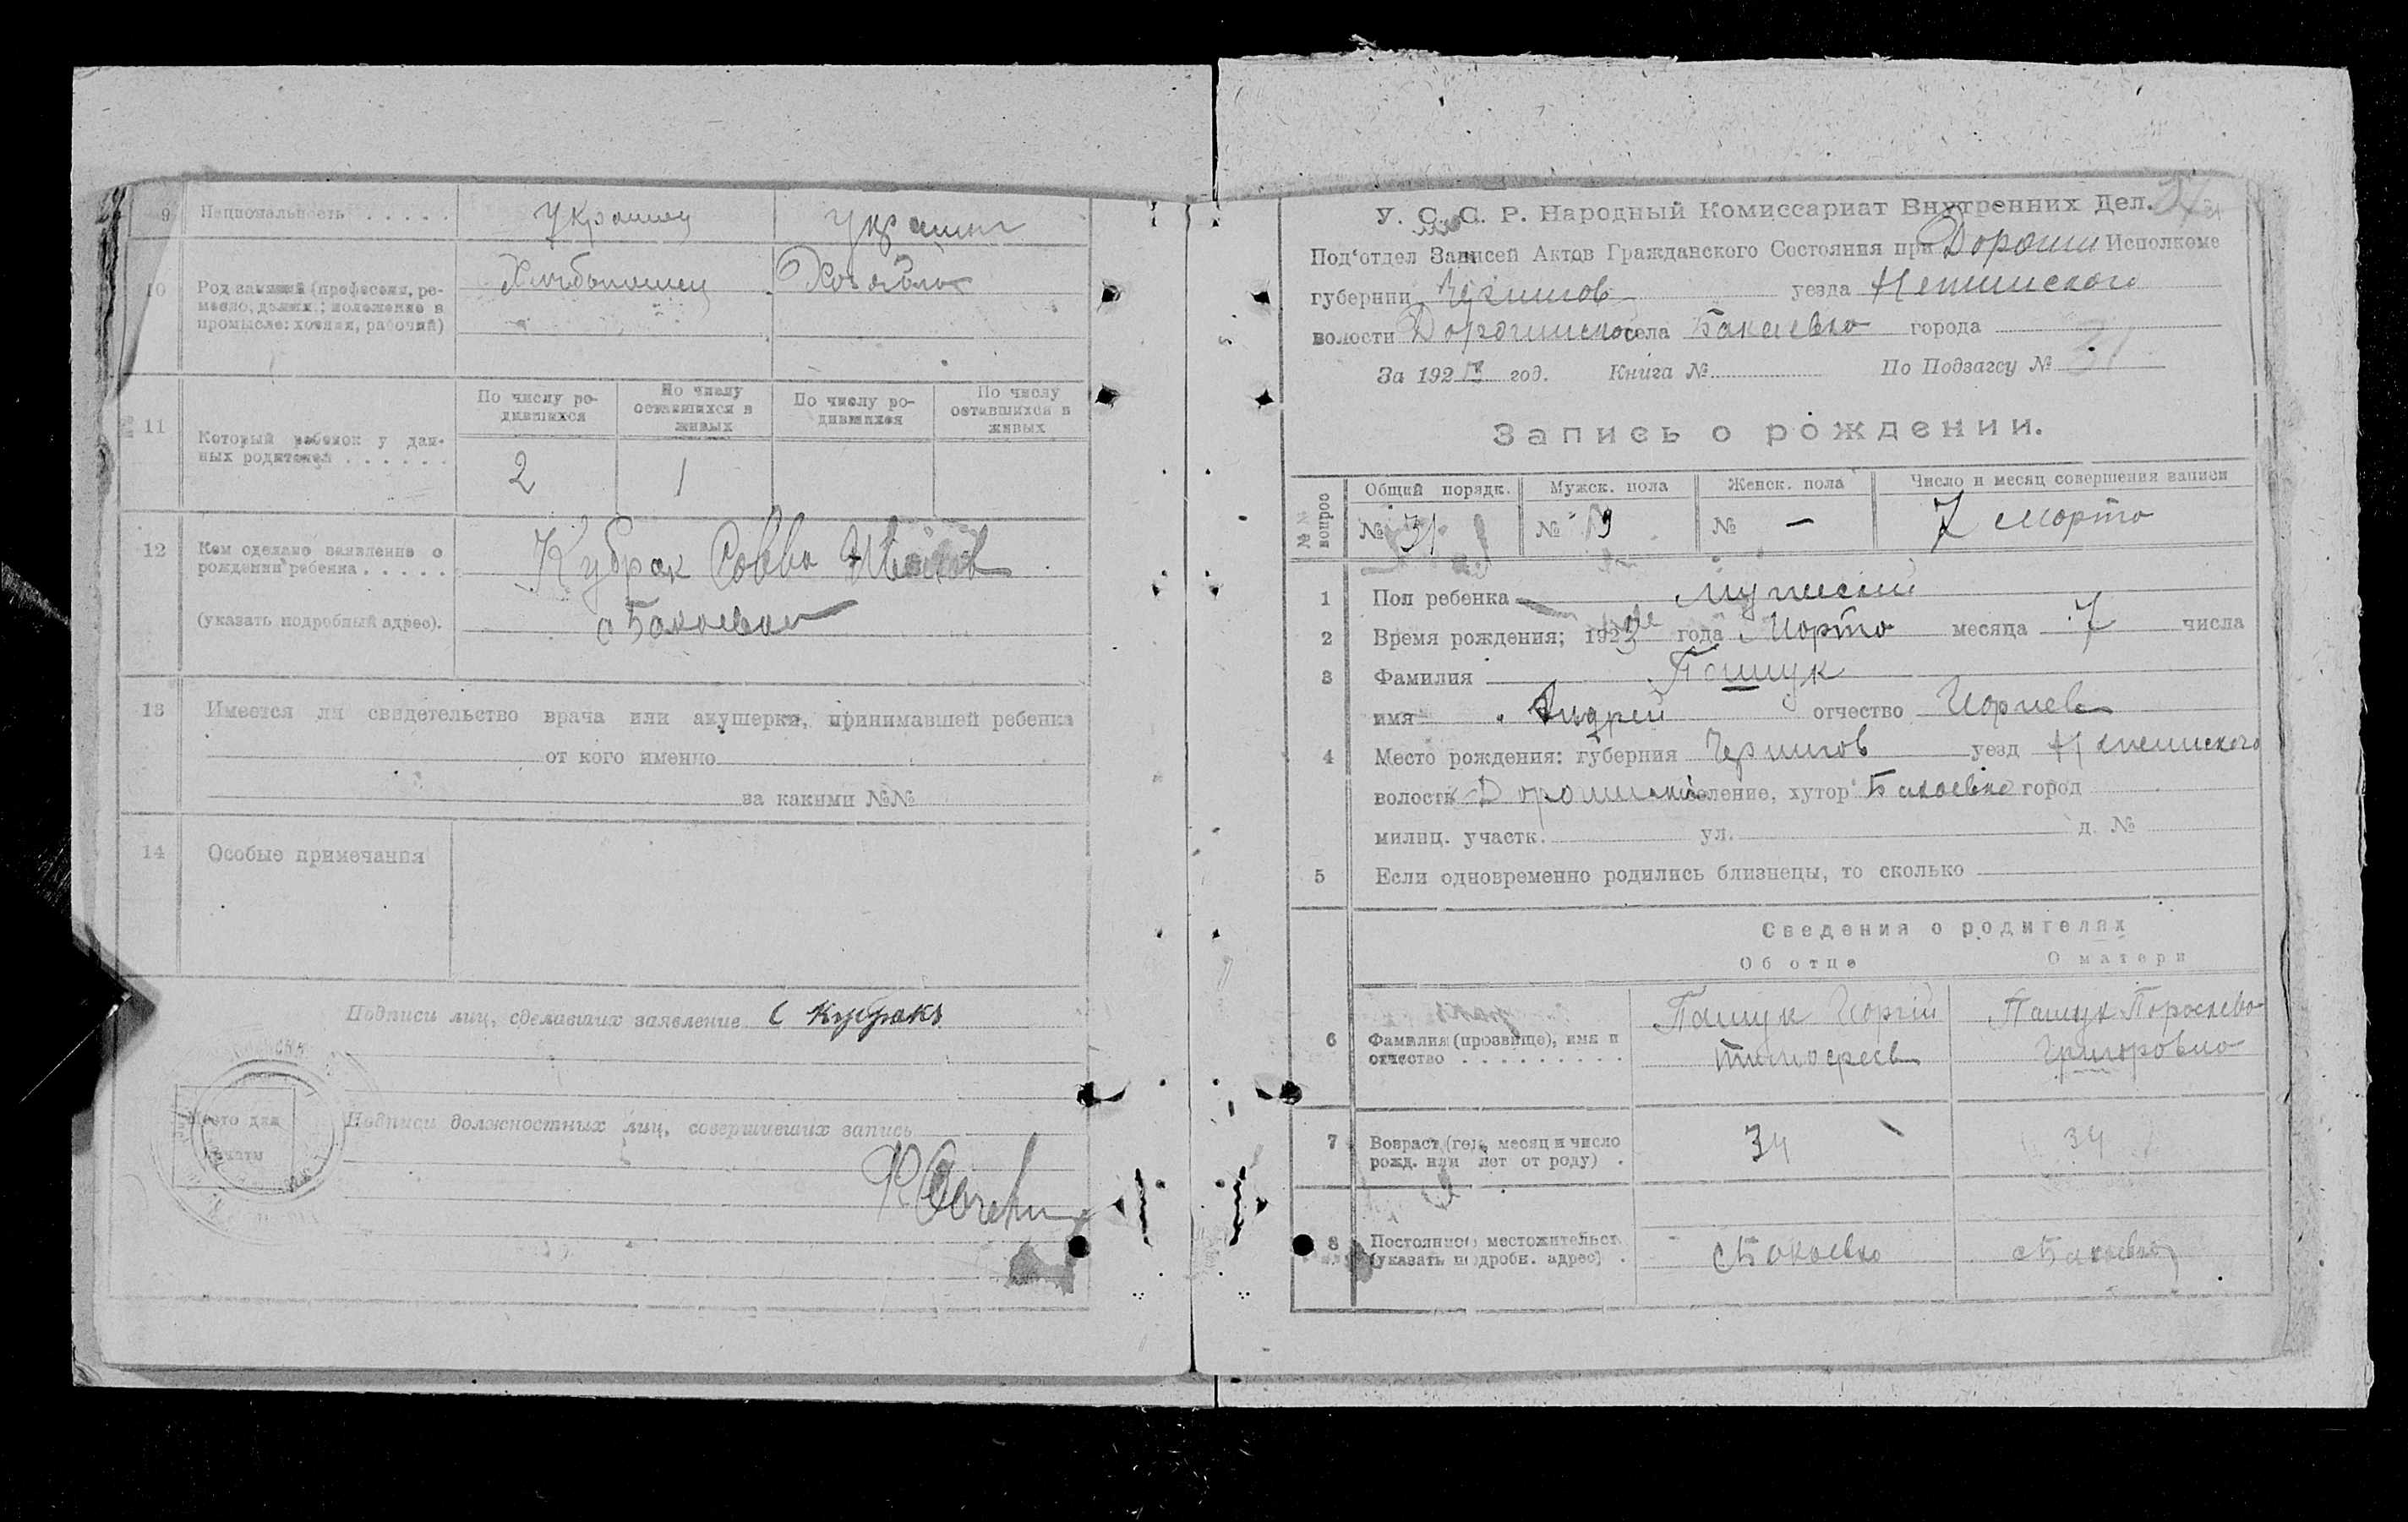 9 Национальность . . . . . Украинец Украин
10 Род занятий (профессия, ре-
месло, должн.; положение в
промысле: хозяин, рабочий)
Хлибопашец
11 Который ребенок у дан-
ных родителей . . . . . .
По числу ро-
дившихся
По числу
оставшихся в
живых
По числу ро-
дившихся
По числу
оставшихся в
живых
2 1
12 Кем сделано заявление о
рождении ребенка . . . . .
Кубрак Савва Иванов
(указать подробный адрес).
с Бакаевки
13 Имеется ли свидетельство врача или акушерки, принимавшей ребенка
от кого именно
за какими №№
14 Особые примечания
Подписи лиц, сделавших заявление С Кубракъ
Место для
печати
Подписи должностных лиц, совершивших запись
У. С. С. Р. Народный Комиссариат Внутренних Дел.
Под'отдел Записей Актов Гражданского Состояния при Дорогин Исполкоме
губернии Чернигов уезда Нежинского
волости Дорогинской села Бакаевка города
За 1923 год. Книга № По Подзагсу № 31
Запись о рождении.
№№ вопрос
Общий порядк. Мужск. пола Женск. пола Число и месяц совершения записи
№ 31 № 19 № — 7 марта
1 Пол ребенка мужеский
2 Время рождения; 1923 года Марта месяца 7 числа
3 Фамилия Пашук
имя Андрей отчество Иориев
4 Место рождения: губерния Чернигов уезд Нежинского
волость Дорогинской селение, хутор Бакаевка город
милиц. участк. ул. д. №
5 Если одновременно родились близнецы, то сколько
Сведения о родителях
Об отце О матери
6 Фамилия (прозвище), имя и
отчество . . . . . . . . . .
Пашук Иоргий
Тимофеев
Пашук Параскева
Григоровна
7 Возраст (год, месяц и число
рожд. или лет от роду) .
34 34
8 Постоянное местожительст.
(указать подробн. адрес) .
с Бакаевка с Бакаевка